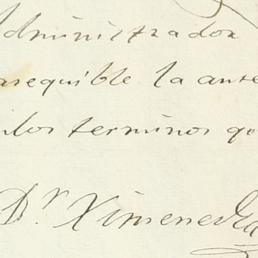 Administrador
asequible la ante
en los terminos qu
Dr. Ximene